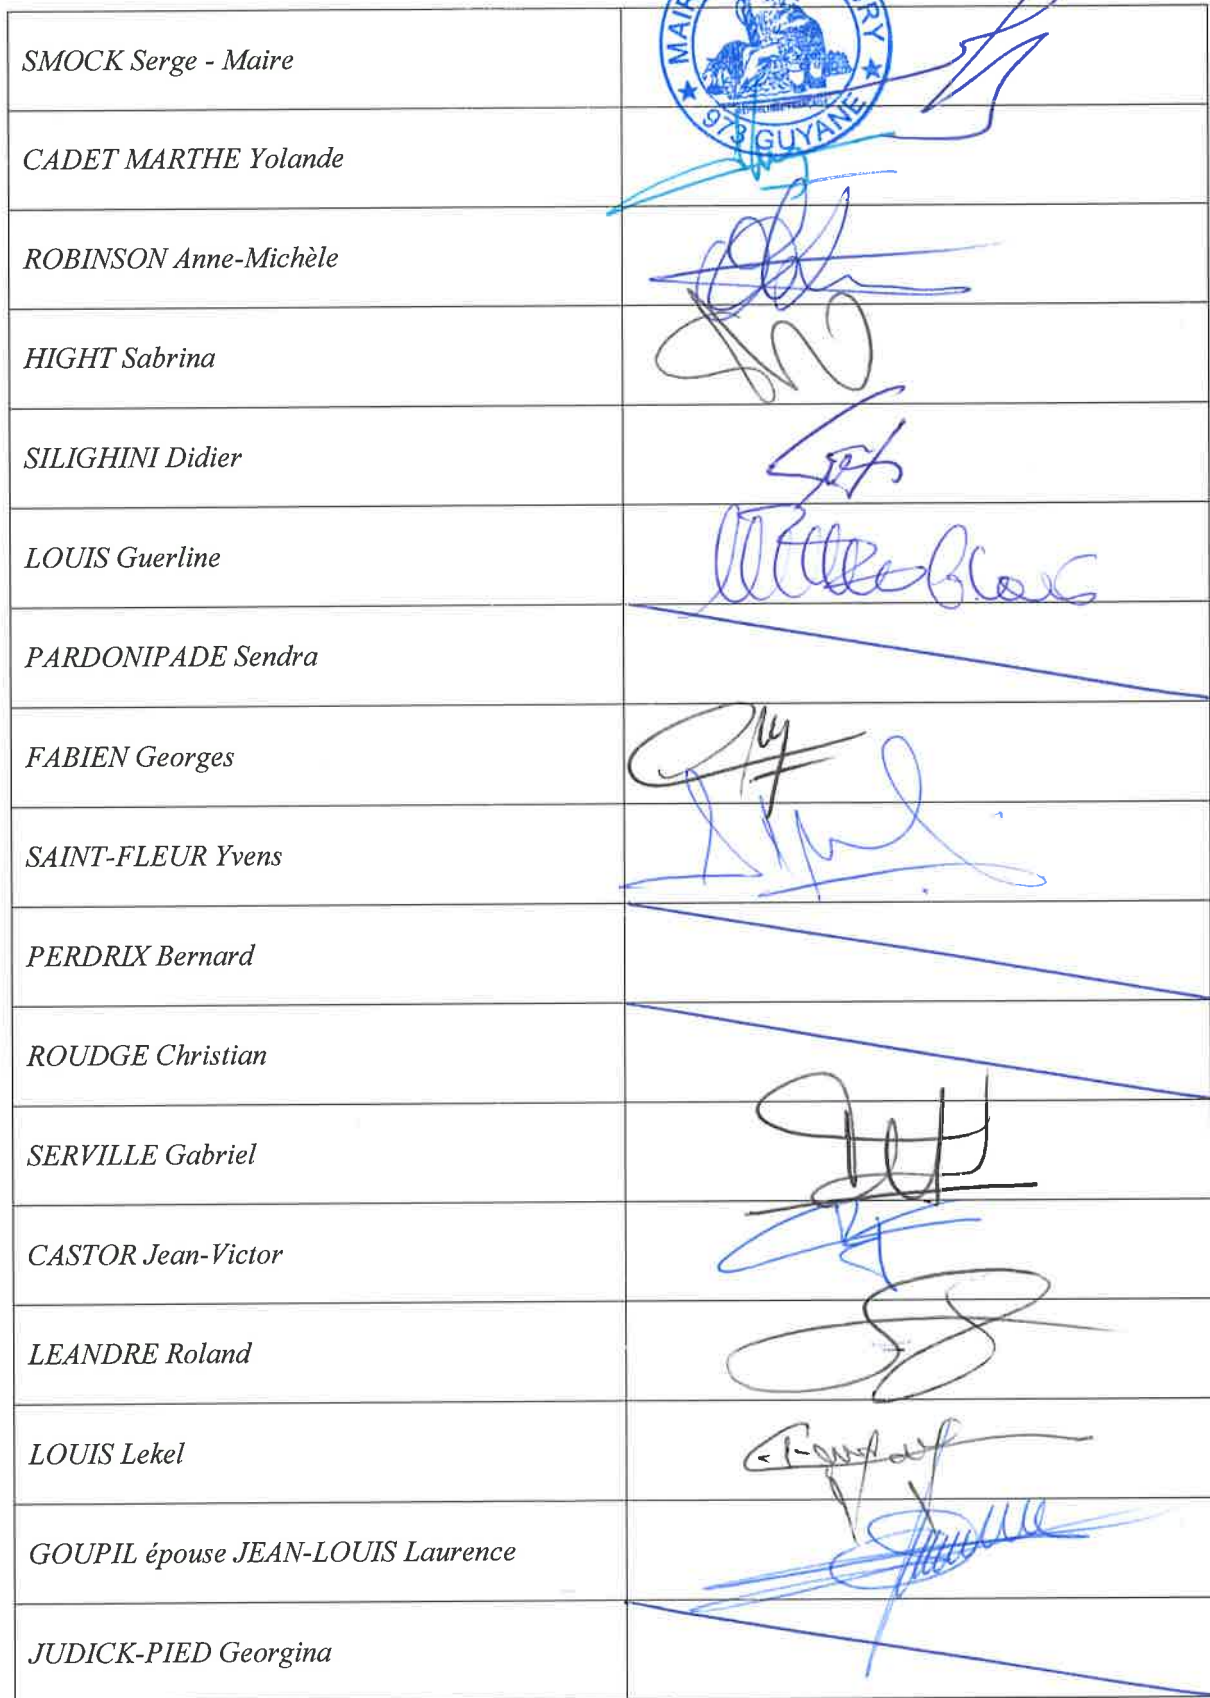 SMOCK Serge - Maire
MAIR
RY
★ 973 GUYANE ★
CADET MARTHE Yolande
ROBINSON Anne-Michèle
HIGHT Sabrina
SILIGHINI Didier
LOUIS Guerline
PARDONIPADE Sendra
FABIEN Georges
SAINT-FLEUR Yvens
PERDRIX Bernard
ROUDGE Christian
SERVILLE Gabriel
CASTOR Jean-Victor
LEANDRE Roland
LOUIS Lekel
GOUPIL épouse JEAN-LOUIS Laurence
JUDICK-PIED Georgina